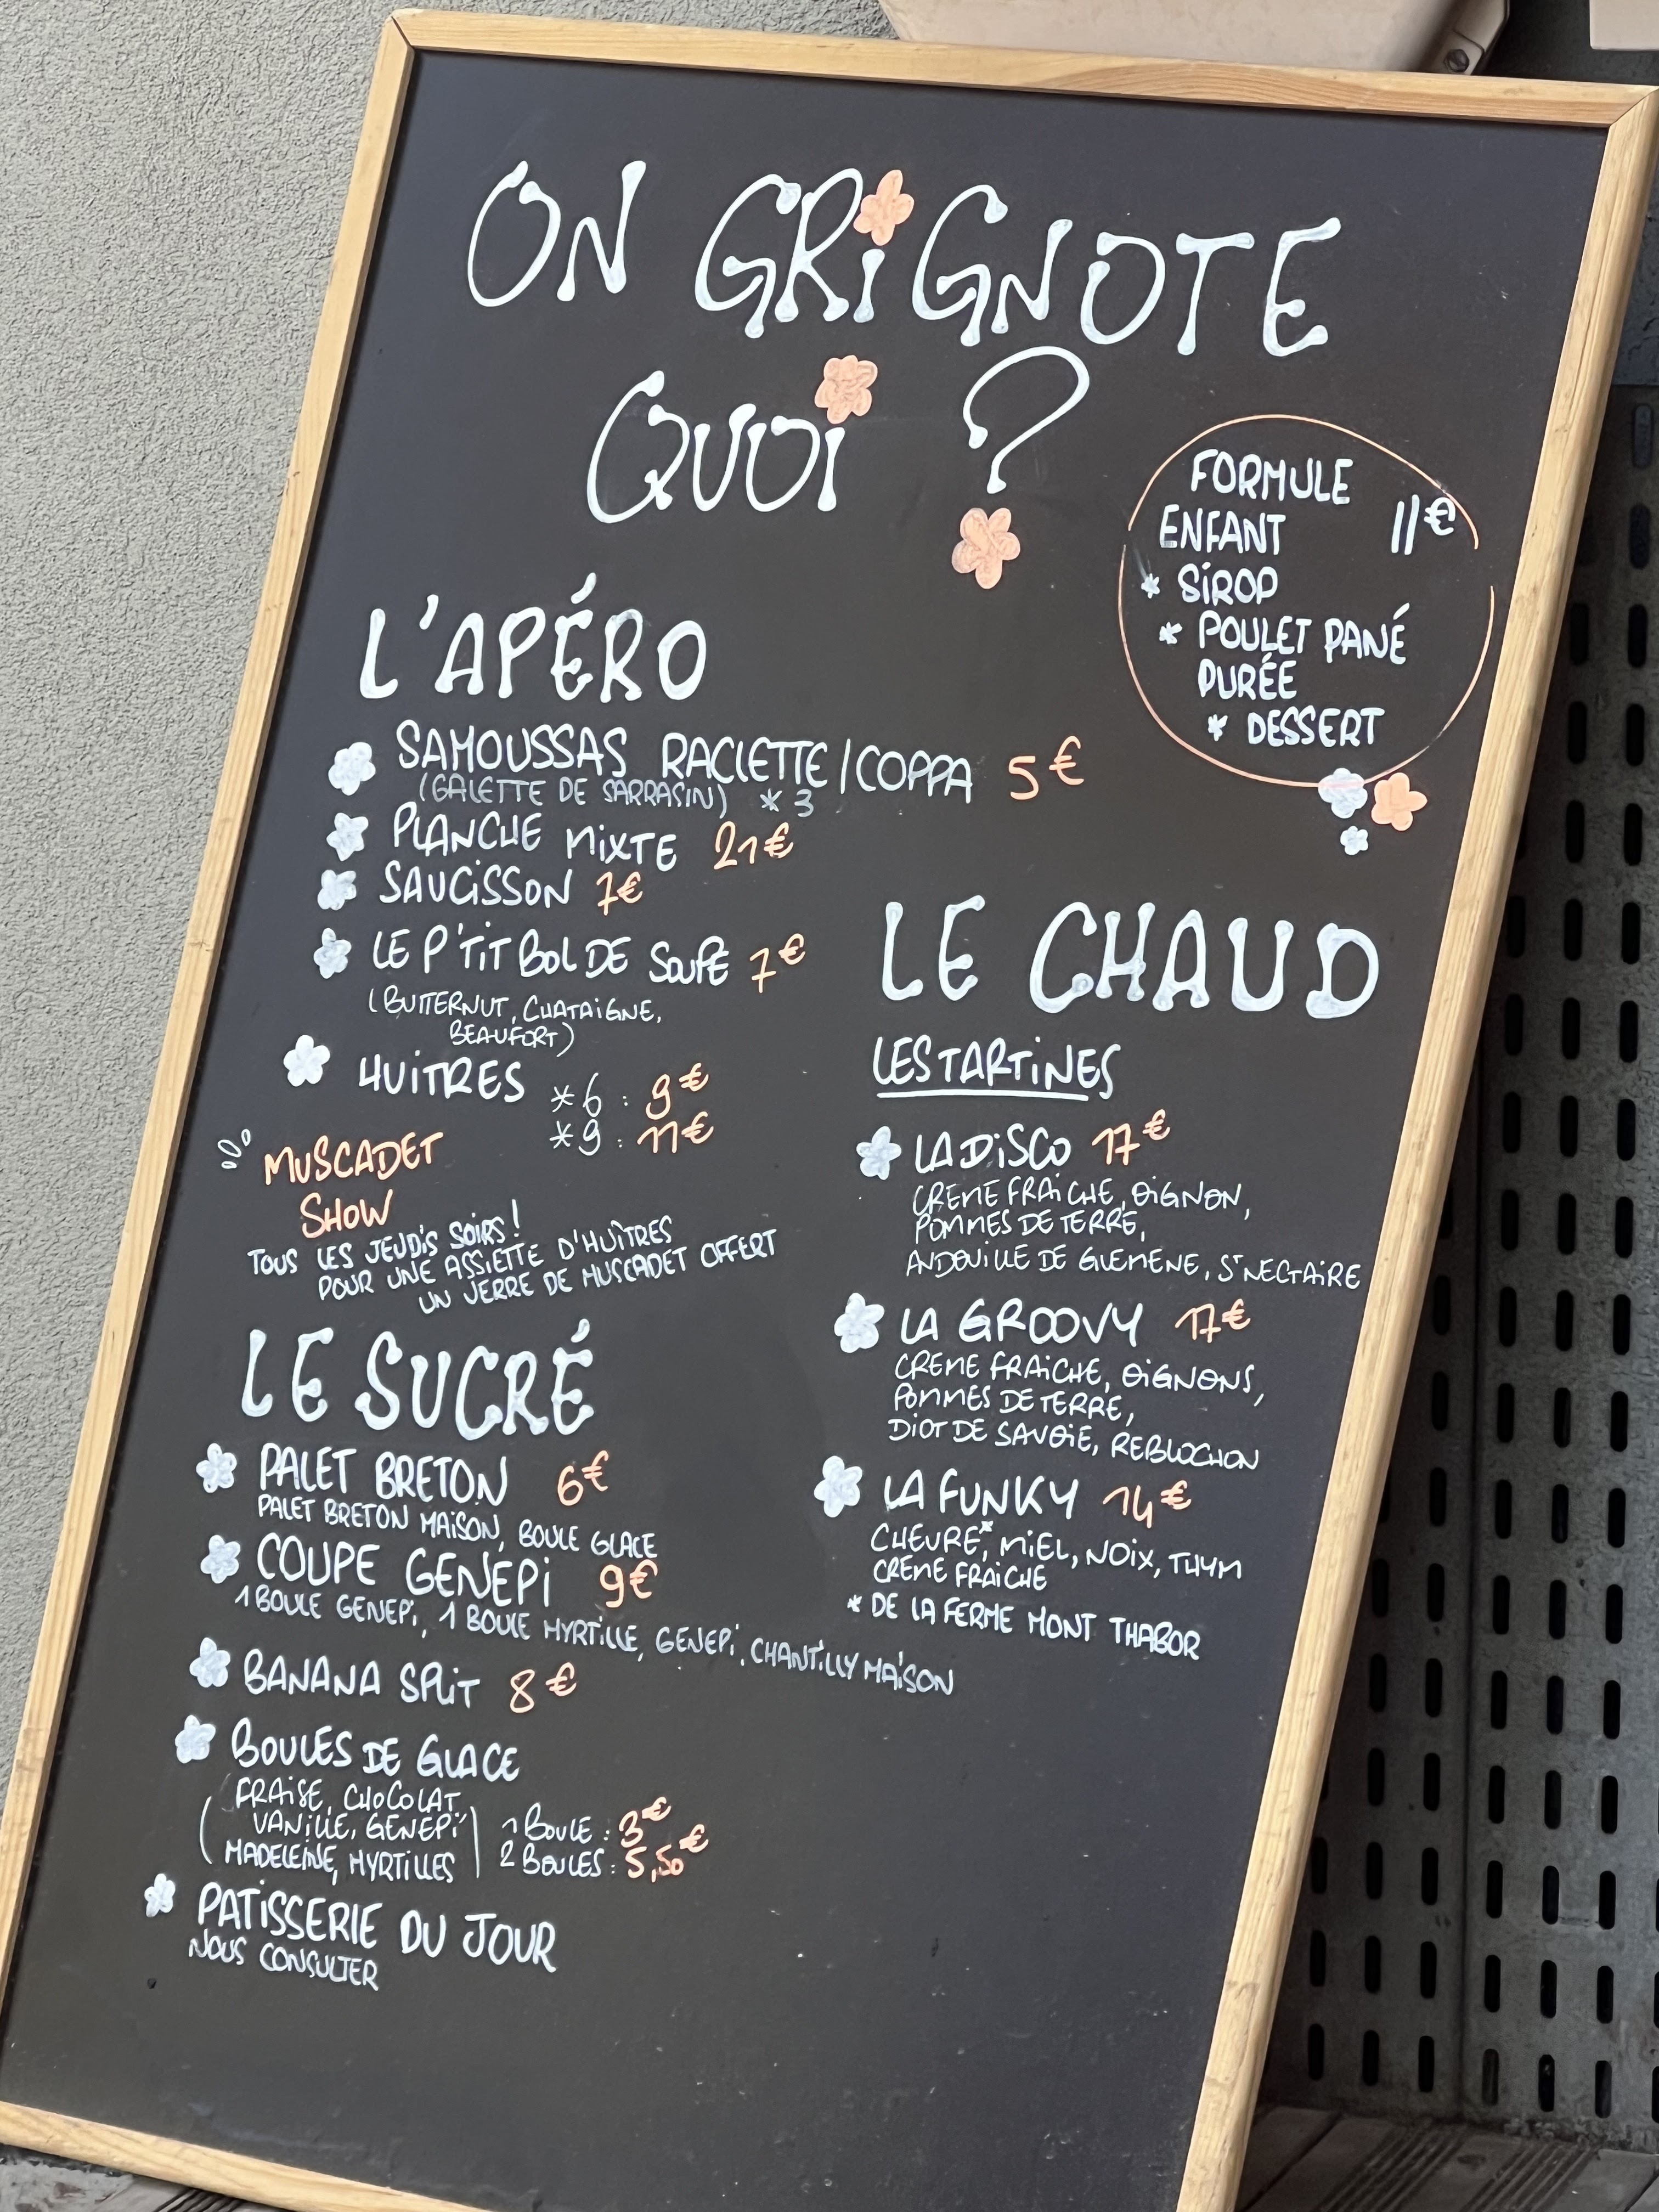 ON GRiGNOTE
QUOi ?
FORMULE
ENFANT 11€
* SiROP
* POULET PANÉ
PURÉE
* DESSERT
L'APÉRO
SAMOUSSAS RACLETTE/COPPA 5€
(GALETTE DE SARRASIN) * 3
PLANCHE MiXTE 21€
SAUCiSSON 7€
LE P'TiT BOL DE SOUPE 7€
(BUTTERNUT, CHATAiGNE,
BEAUFORT)
HUiTRES *6 : 9€
*9 : 11€
MUSCADET
SHOW
TOUS LES JEUDiS SOiRS !
POUR UNE ASSIETTE D'HUÎTRES
UN VERRE DE MUSCADET OFFERT
LE SUCRÉ
PALET BRETON 6€
PALET BRETON MAiSON, BOULE GLACE
COUPE GENEPi 9€
1 BOULE GENEPi, 1 BOULE MYRTiLLE, GENEPi, CHANTiLLY MAiSON
BANANA SPLiT 8€
BOULES DE GLACE
(FRAiSE, CHOCOLAT
VANiLLE, GENEPi
MADELEiNE, MYRTiLLES)
1 BOULE : 3€
2 BOULES : 5,50€
PATiSSERIE DU JOUR
NOUS CONSULTER
LE CHAUD
LES TARTiNES
LA DiSCO 17€
CREME FRAiCHE, OiGNON,
POMMES DE TERRE,
ANDOUiLLE DE GUEMENE, ST NECTAiRE
LA GROOVY 17€
CREME FRAiCHE, OiGNONS,
POMMES DE TERRE,
DiOT DE SAVOiE, REBLOCHON
LA FUNKY 14€
CHEVRE*, MiEL, NOiX, THYM
CREME FRAiCHE
* DE LA FERME MONT THABOR